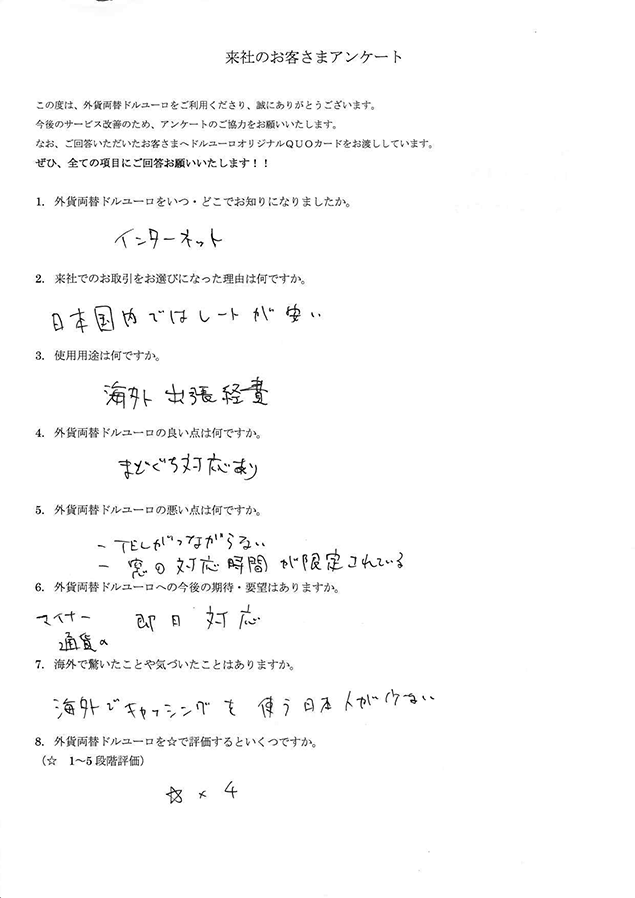 来社のお客さまアンケート
この度は、外貨両替ドルユーロをご利用くださり、誠にありがとうございます。
今後のサービス改善のため、アンケートのご協力をお願いいたします。
なお、ご回答いただいたお客さまへドルユーロオリジナルQUOカードをお渡ししています。
ぜひ、全ての項目にご回答お願いいたします！！
1. 外貨両替ドルユーロをいつ・どこでお知りになりましたか。
インターネット
2. 来社でのお取引をお選びになった理由は何ですか。
日本国内ではレートが安い
3. 使用用途は何ですか。
海外出張経費
4. 外貨両替ドルユーロの良い点は何ですか。
まどぐち対応あり
5. 外貨両替ドルユーロの悪い点は何ですか。
- TELがつながらない
- 窓の対応時間が限定されている
6. 外貨両替ドルユーロへの今後の期待・要望はありますか。
マイナー 即日対応
通貨の
7. 海外で驚いたことや気づいたことはありますか。
海外でキャッシングを使う日本人が少ない
8. 外貨両替ドルユーロを☆で評価するといくつですか。
（☆ 1～5段階評価）
☆ × 4